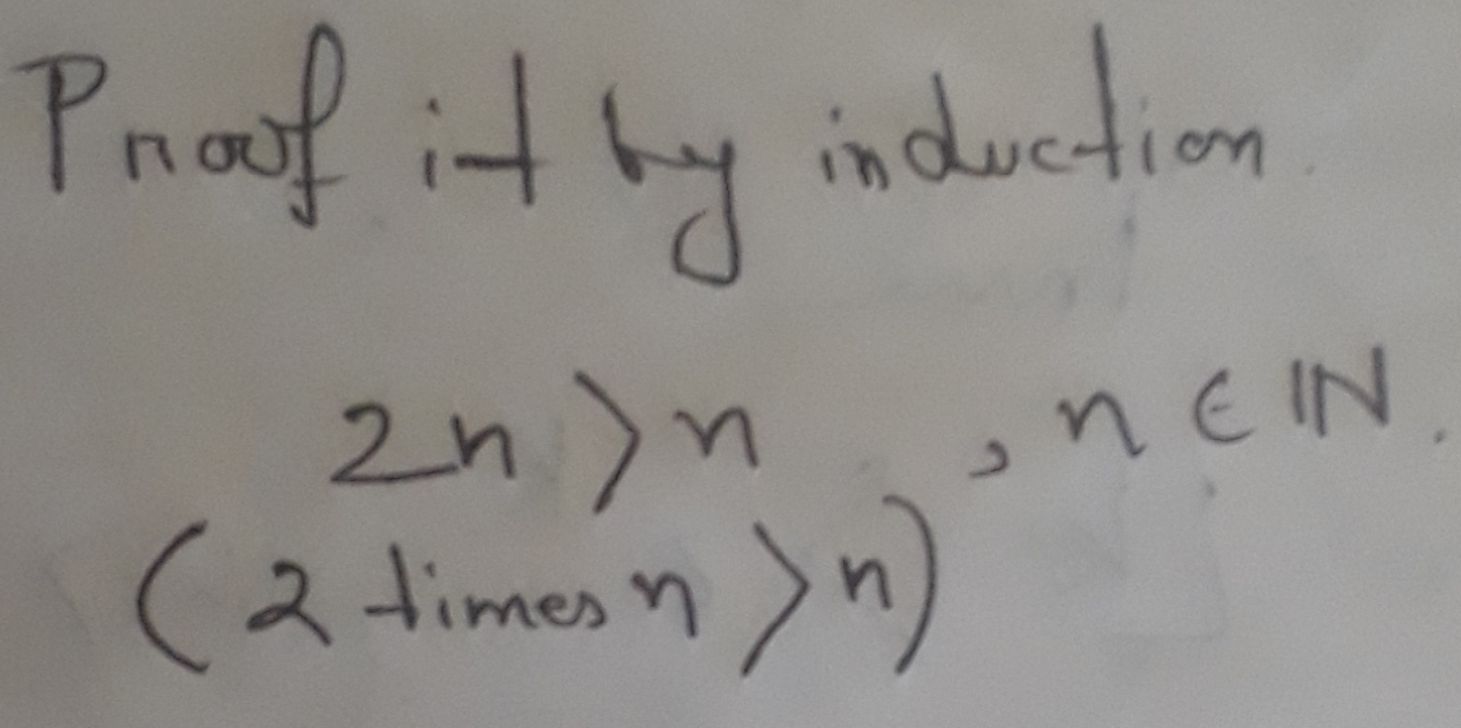 Proof it by induction.
2n > n , n ∈ ℕ.
(2 times n > n)